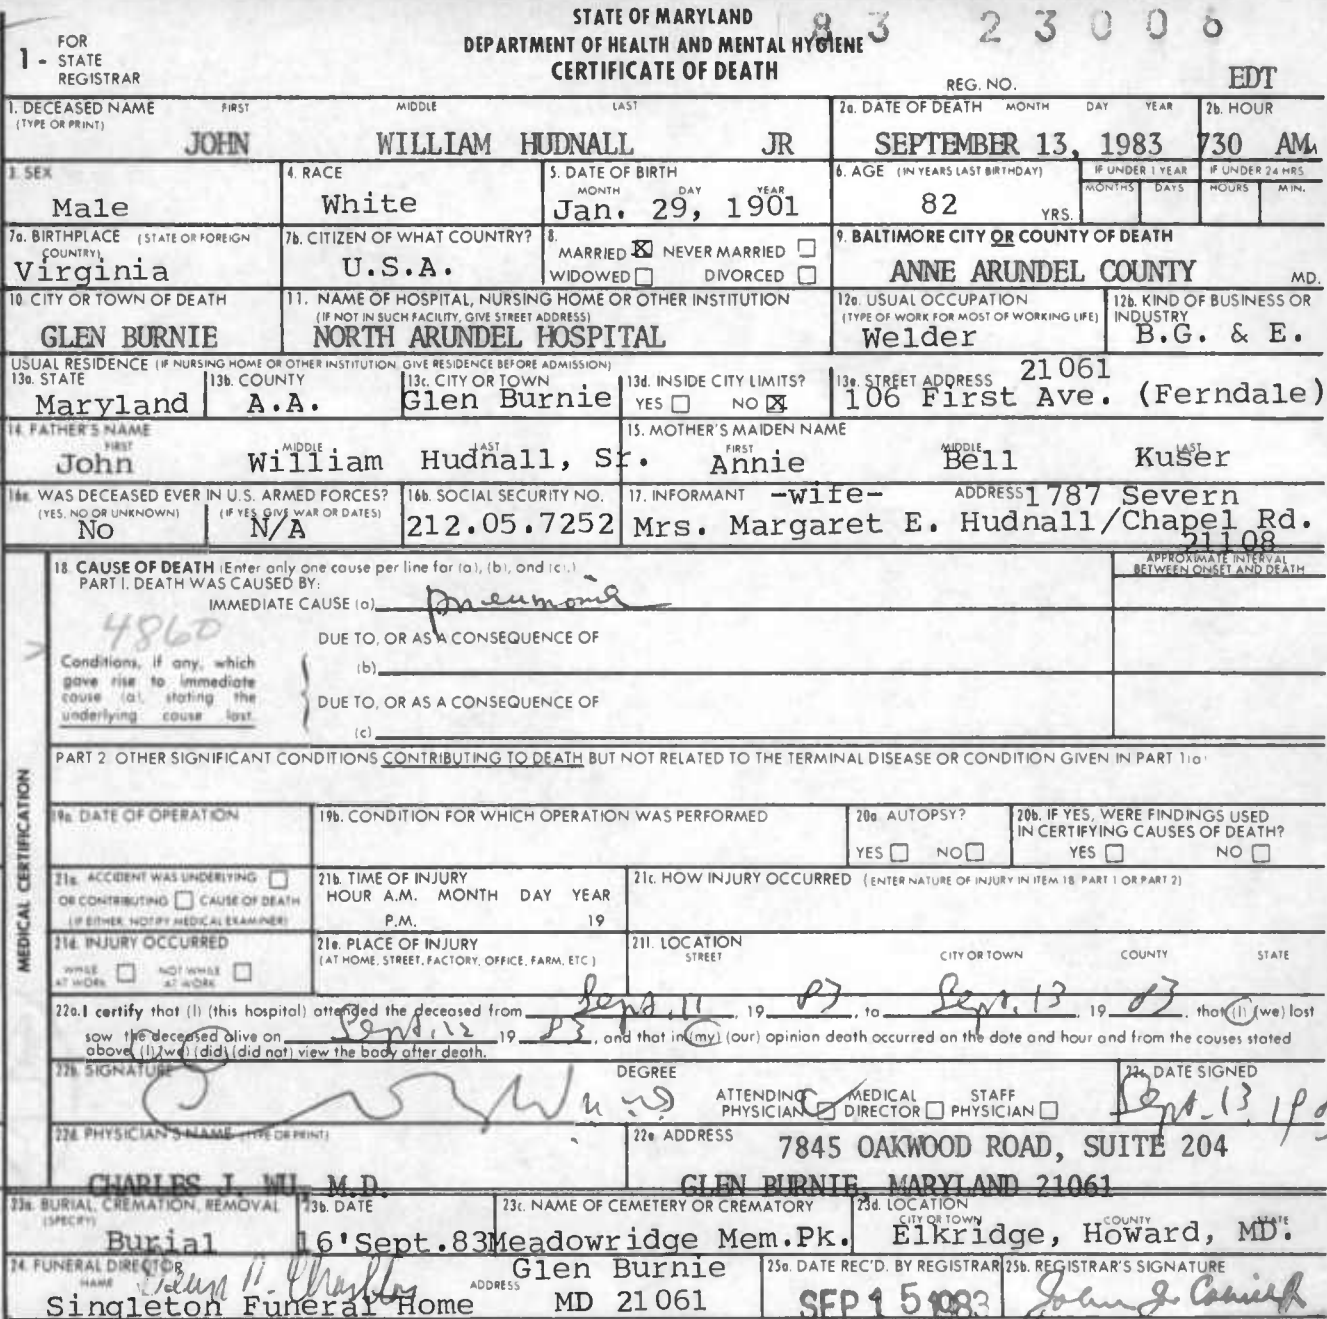 STATE OF MARYLAND
83 23006
DEPARTMENT OF HEALTH AND MENTAL HYGIENE
CERTIFICATE OF DEATH
1 - FOR STATE REGISTRAR
REG. NO. EDT
1. DECEASED NAME FIRST MIDDLE LAST
(TYPE OR PRINT)
JOHN WILLIAM HUDNALL JR
2a. DATE OF DEATH MONTH DAY YEAR
SEPTEMBER 13, 1983
2b. HOUR
730 AM
3. SEX
Male
4. RACE
White
5. DATE OF BIRTH
MONTH DAY YEAR
Jan. 29, 1901
6. AGE (IN YEARS LAST BIRTHDAY)
82 YRS.
IF UNDER 1 YEAR
MONTHS DAYS
IF UNDER 24 HRS
HOURS MIN.
7a. BIRTHPLACE (STATE OR FOREIGN
COUNTRY)
Virginia
7b. CITIZEN OF WHAT COUNTRY?
U.S.A.
8.
MARRIED ☒ NEVER MARRIED ☐
WIDOWED ☐ DIVORCED ☐
9. BALTIMORE CITY OR COUNTY OF DEATH
ANNE ARUNDEL COUNTY MD.
10. CITY OR TOWN OF DEATH
GLEN BURNIE
11. NAME OF HOSPITAL, NURSING HOME OR OTHER INSTITUTION
(IF NOT IN SUCH FACILITY, GIVE STREET ADDRESS)
NORTH ARUNDEL HOSPITAL
12a. USUAL OCCUPATION
(TYPE OF WORK FOR MOST OF WORKING LIFE)
Welder
12b. KIND OF BUSINESS OR
INDUSTRY
B.G. & E.
USUAL RESIDENCE (IF NURSING HOME OR OTHER INSTITUTION GIVE RESIDENCE BEFORE ADMISSION)
13a. STATE
Maryland
13b. COUNTY
A.A.
13c. CITY OR TOWN
Glen Burnie
13d. INSIDE CITY LIMITS?
YES ☐ NO ☒
13e. STREET ADDRESS 21061
106 First Ave. (Ferndale)
14. FATHER'S NAME
FIRST MIDDLE LAST
John William Hudnall, Sr.
15. MOTHER'S MAIDEN NAME
FIRST MIDDLE LAST
Annie Bell Kuser
16a. WAS DECEASED EVER IN U.S. ARMED FORCES?
(YES, NO OR UNKNOWN) (IF YES, GIVE WAR OR DATES)
No N/A
16b. SOCIAL SECURITY NO.
212.05.7252
17. INFORMANT -wife- ADDRESS 1787 Severn
Mrs. Margaret E. Hudnall/Chapel Rd.
21108
18. CAUSE OF DEATH (Enter only one cause per line for (a), (b), and (c).)
PART I. DEATH WAS CAUSED BY:
APPROXIMATE INTERVAL
BETWEEN ONSET AND DEATH
IMMEDIATE CAUSE (a) pneumonia
4860
DUE TO, OR AS A CONSEQUENCE OF
Conditions, if any, which
gave rise to immediate
cause (a), stating the
underlying cause last.
(b)
DUE TO, OR AS A CONSEQUENCE OF
(c)
PART 2 OTHER SIGNIFICANT CONDITIONS CONTRIBUTING TO DEATH BUT NOT RELATED TO THE TERMINAL DISEASE OR CONDITION GIVEN IN PART 1(a)
MEDICAL CERTIFICATION
19a. DATE OF OPERATION
19b. CONDITION FOR WHICH OPERATION WAS PERFORMED
20a. AUTOPSY?
YES ☐ NO ☐
20b. IF YES, WERE FINDINGS USED
IN CERTIFYING CAUSES OF DEATH?
YES ☐ NO ☐
21a. ACCIDENT WAS UNDERLYING ☐
OR CONTRIBUTING ☐ CAUSE OF DEATH
(IF EITHER, NOTIFY MEDICAL EXAMINER)
21b. TIME OF INJURY
HOUR A.M. MONTH DAY YEAR
P.M. 19
21c. HOW INJURY OCCURRED (ENTER NATURE OF INJURY IN ITEM 18 PART 1 OR PART 2)
21d. INJURY OCCURRED
WHILE AT WORK ☐ NOT WHILE AT WORK ☐
21e. PLACE OF INJURY
(AT HOME, STREET, FACTORY, OFFICE, FARM, ETC)
21f. LOCATION
STREET CITY OR TOWN COUNTY STATE
22a. I certify that (I) (this hospital) attended the deceased from Sept. 11 19 83, to Sept. 13 19 83, that (I) (we) last
saw the deceased alive on Sept. 12 19 83, and that in (my) (our) opinion death occurred on the date and hour and from the causes stated
above, (I) (we) (did) (did not) view the body after death.
22b. SIGNATURE DEGREE
ATTENDING PHYSICIAN ☑ MEDICAL DIRECTOR ☐ STAFF PHYSICIAN ☐
22c. DATE SIGNED
Sept. 13, 198
22d. PHYSICIAN'S NAME (TYPE OR PRINT)
CHARLES J. WU, M.D.
22e. ADDRESS
7845 OAKWOOD ROAD, SUITE 204
GLEN BURNIE, MARYLAND 21061
23a. BURIAL, CREMATION, REMOVAL
(SPECIFY)
Burial
23b. DATE
16'Sept.83
23c. NAME OF CEMETERY OR CREMATORY
Meadowridge Mem.Pk.
23d. LOCATION
CITY OR TOWN COUNTY STATE
Elkridge, Howard, MD.
24. FUNERAL DIRECTOR
NAME
Singleton Funeral Home
ADDRESS
Glen Burnie
MD 21061
25a. DATE REC'D. BY REGISTRAR
SEP 15 1983
25b. REGISTRAR'S SIGNATURE